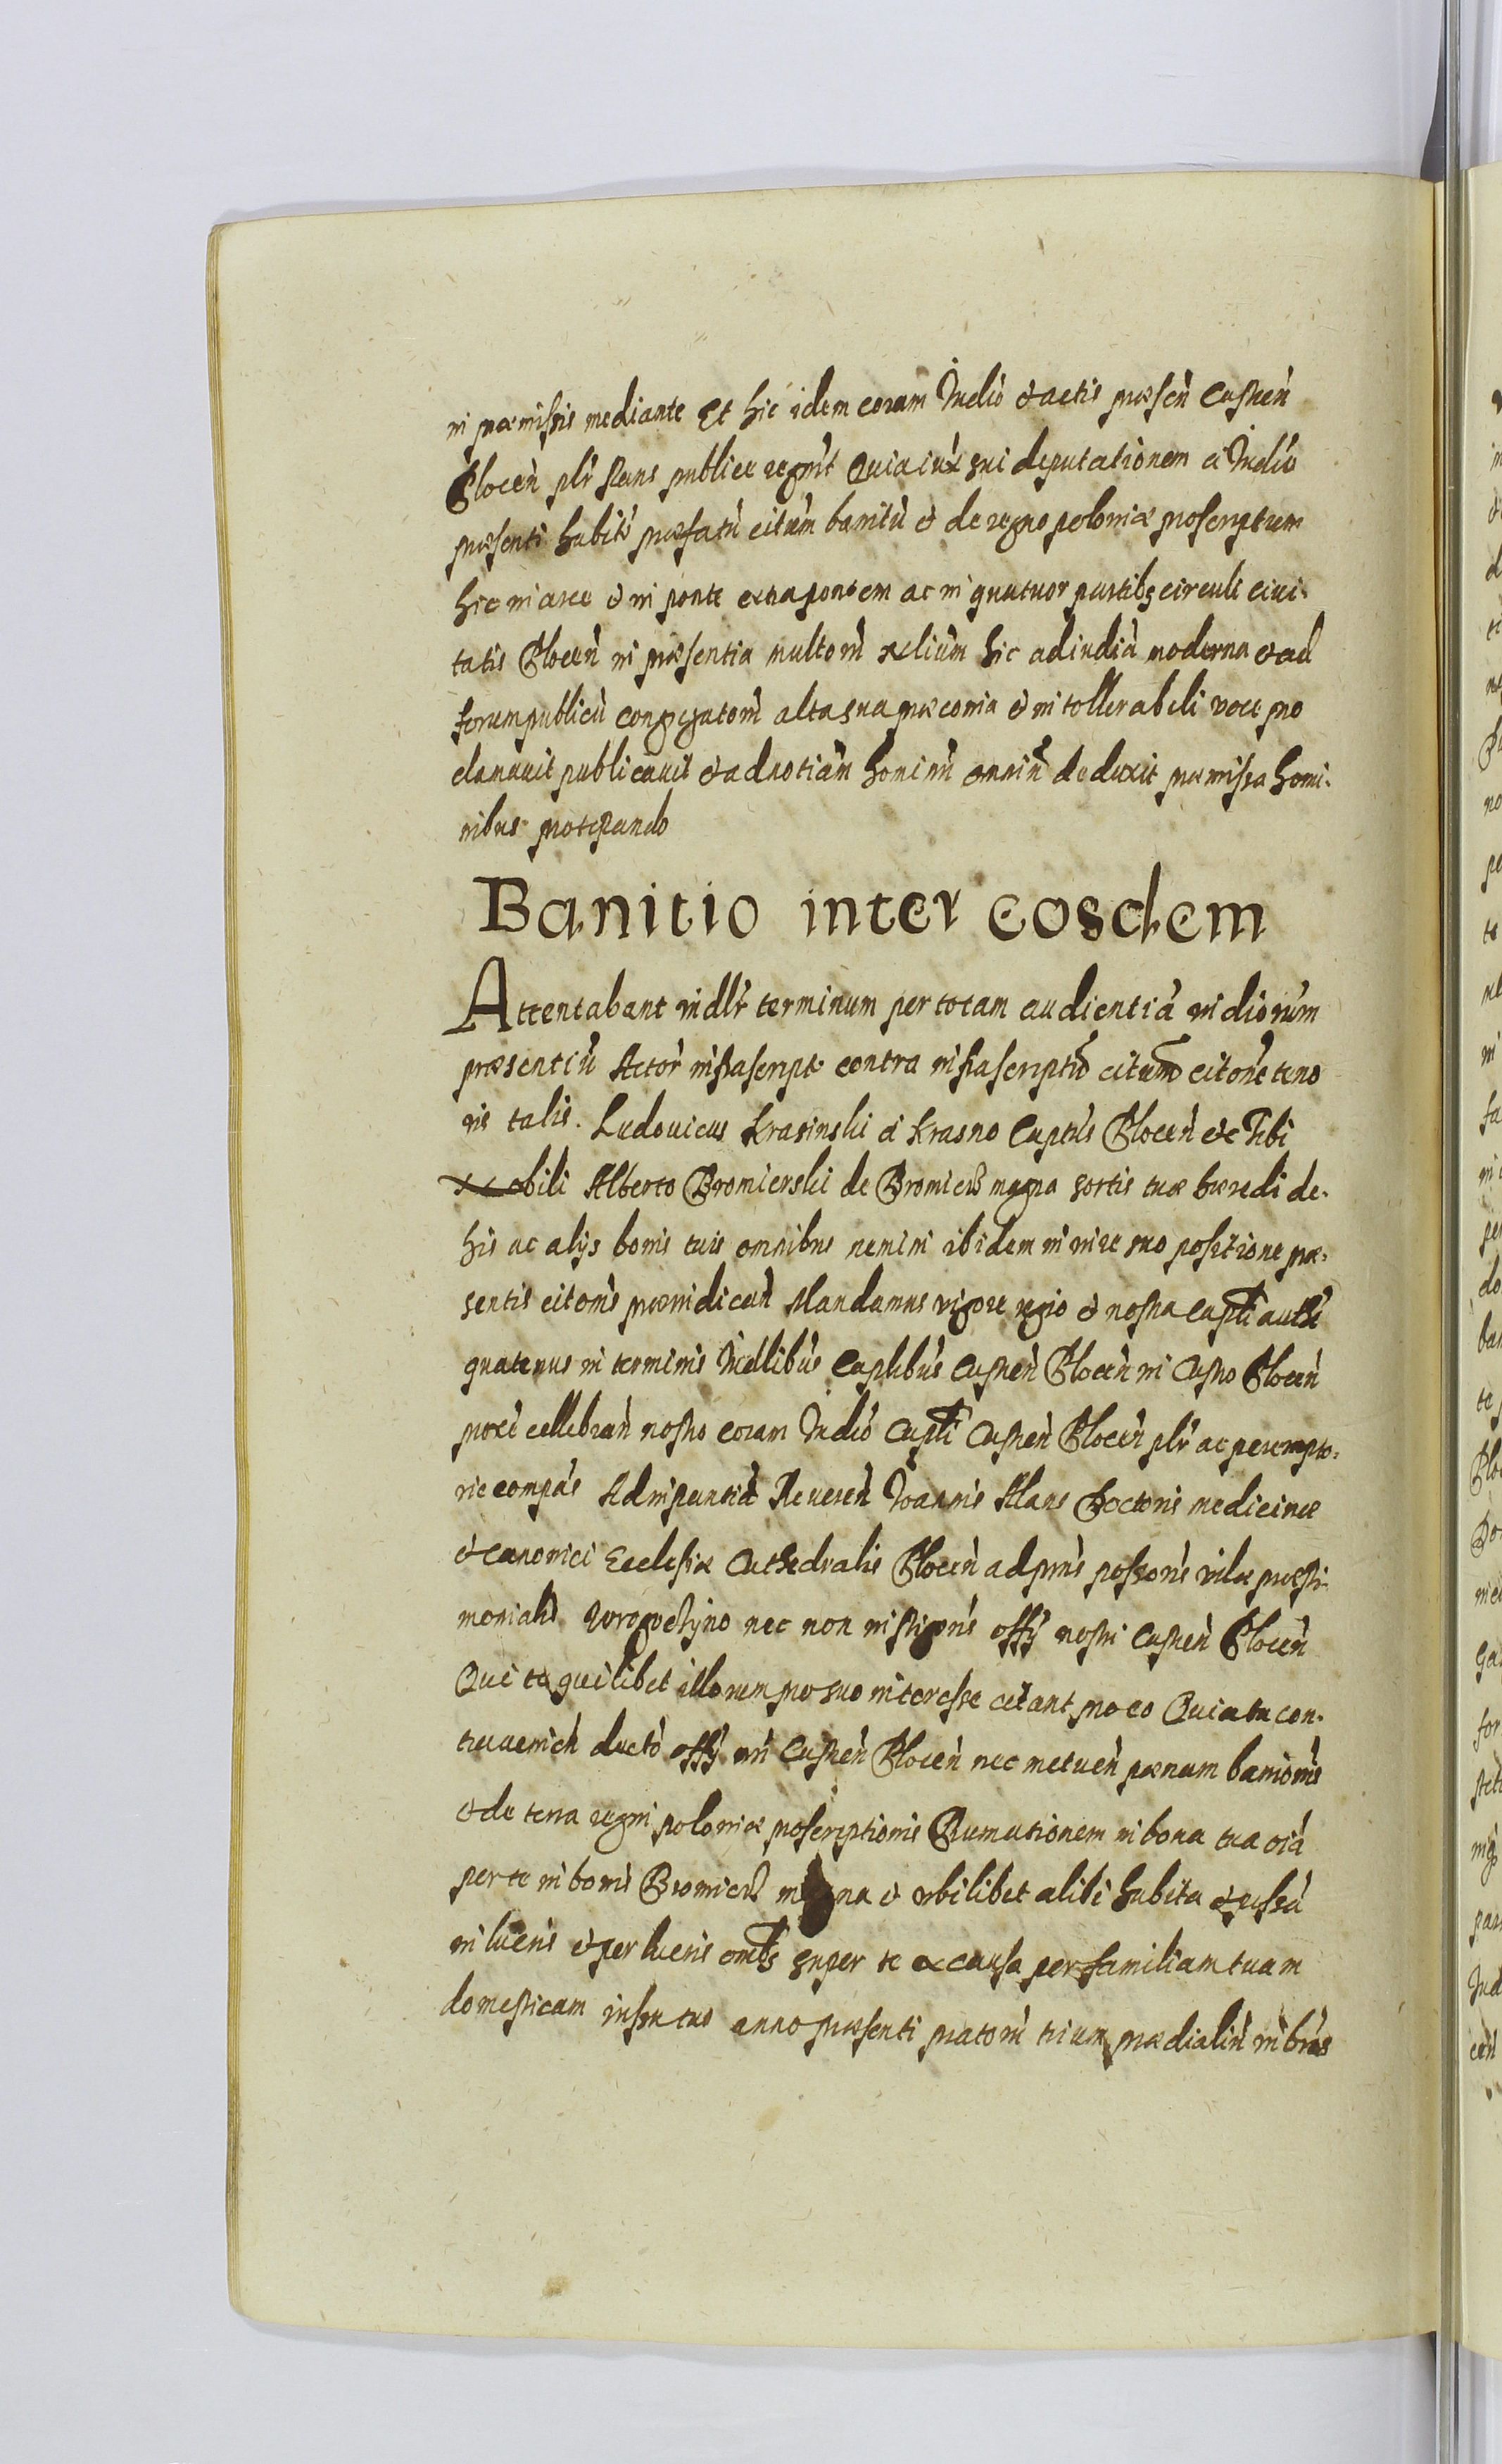 in præmissis mediante Et hic idem coram Iudio et actis præsen Castren
Plocen plr stans publice recognit Quia iux sui deputationem a Iudio
præsenti habitã præfatũ citum banitũ et de regno poloniæ proscriptum
hic in arce et in ponte extra pontem ac in quatuor partibq circuli civi-
tatis Plocen in præsentia multorũ nobilium hic ad iudia moderna et ad
forum publicũ congregatorũ alta sua præconia et intollerabili voce pro
clamavit publicavit et ad notiam hominũ omniũ deduxit præmissa homi-
nibus protestando
Banitio inter eosdem
Attentabant iudlr terminum per totam audientiã iudiorum
præsentiũ Actor infrascript contra infrascriptũ citum citone teno
ris talis. Ludovicus Krasinski a Krasno Captus Plocen etc Tibi
bili Alberto Bromierski de Bromierz magna sortis tuæ hæredi de
his ac alijs bonis tuis omnibus nemini ibidem in iure suo positione præ-
sentis citonis præiudican Mandamus vigore regio et nostra Captli authe
quatenus in terminis Iudlibus Captlibus Castren Plocen in Castro Plocen
proxe cellebran nostro coram Iudio Captli Castren Plocen plr ac perempto-
rie compas Ad instantiã Reveren Ioannis Alans Doctoris medicinæ
et canonici Ecclesiæ Cathedralis Plocen ad prns possoris villæ præsti-
monialis Wrogoczyno nec non instigoris offy nostri Castren Plocen
Qui te quilibet illorum pro suo interesse citant pro eo Quia tu con-
travenien decto offy nri Castren Plocen nec metuen pænam banionis
et de terra regni poloniæ proscriptionis Rumationem in bona tua oiã
per te in bonis Bromierz magna et ubilibet alibi habita et possã
in lucris et per lucris ombq super te ex causa per familiam tuam
domesticam iussu tuo anno præsenti pratorũ trium prædialiũ in bnis